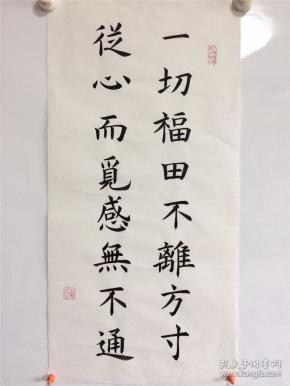 一切福田不離方寸
從心而覓感無不通
孔夫子旧书网
book.kongfz.com